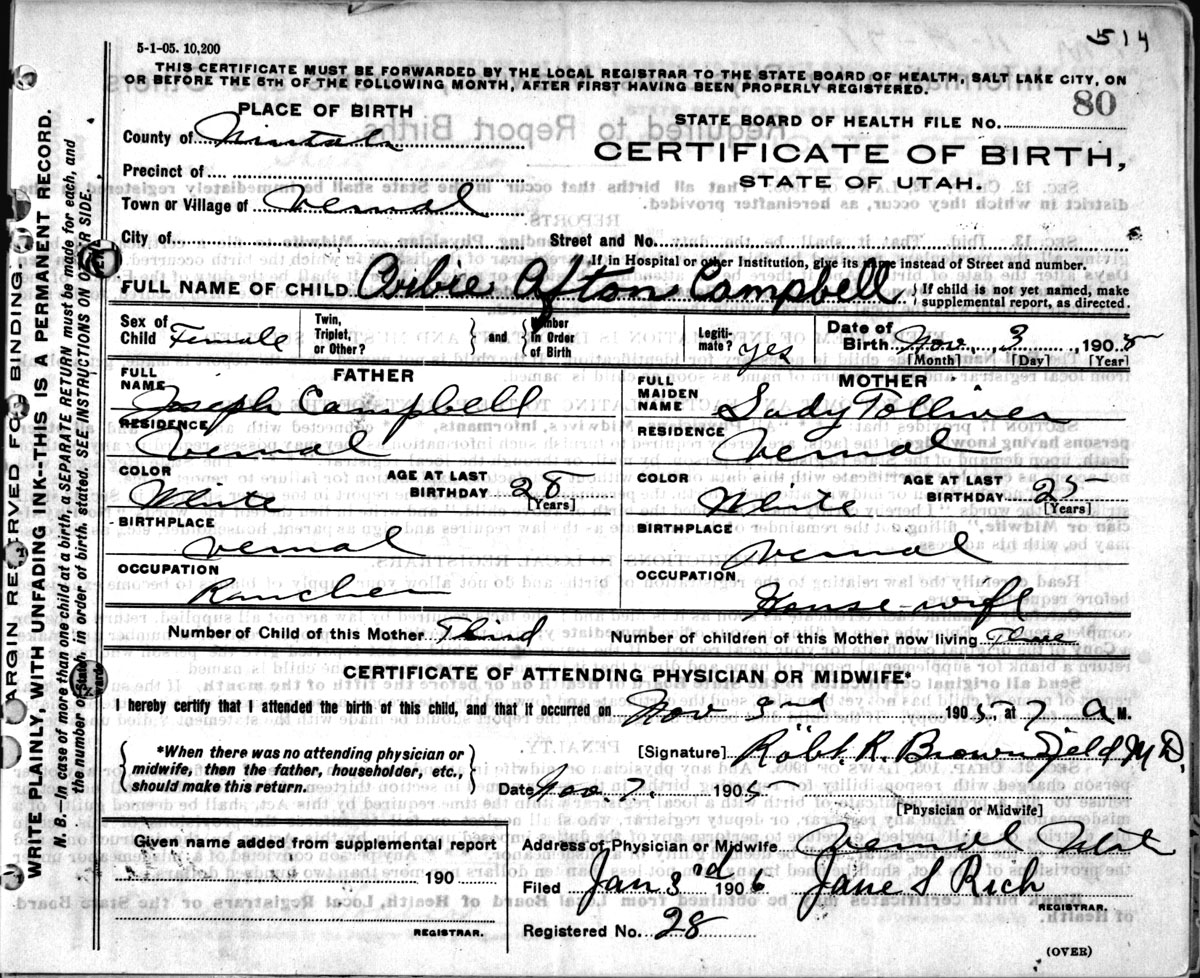 514
5-1-05. 10,200
THIS CERTIFICATE MUST BE FORWARDED BY THE LOCAL REGISTRAR TO THE STATE BOARD OF HEALTH, SALT LAKE CITY, ON
OR BEFORE THE 5TH OF THE FOLLOWING MONTH, AFTER FIRST HAVING BEEN PROPERLY REGISTERED.
80
PLACE OF BIRTH
STATE BOARD OF HEALTH FILE NO.
County of
CERTIFICATE OF BIRTH,
Precinct of
STATE OF UTAH.
Town or Village of Vernal
City of Street and No.
If in Hospital or other Institution, give its name instead of Street and number.
FULL NAME OF CHILD Afton Campbell
If child is not yet named, make
supplemental report, as directed.
Sex of Child Female
Twin, Triplet, or Other?
and
Number in Order of Birth
Legitimate? yes
Date of Birth Nov. 3, 1905
[Month] [Day] [Year]
FATHER
FULL NAME Joseph Campbell
RESIDENCE Vernal
COLOR White
AGE AT LAST BIRTHDAY 28 [Years]
BIRTHPLACE Vernal
OCCUPATION Rancher
MOTHER
FULL MAIDEN NAME Sady Tolliver
RESIDENCE Vernal
COLOR White
AGE AT LAST BIRTHDAY 25 [Years]
BIRTHPLACE Vernal
OCCUPATION House-wife
Number of Child of this Mother Third
Number of children of this Mother now living Three
CERTIFICATE OF ATTENDING PHYSICIAN OR MIDWIFE*
I hereby certify that I attended the birth of this child, and that it occurred on Nov 1905 at 7 a M.
*When there was no attending physician or
midwife, then the father, householder, etc.,
should make this return.
[Signature] Robt. R. Brownfield M.D.
Date Nov 7. 1905
[Physician or Midwife]
Given name added from supplemental report
190
REGISTRAR.
Address of Physician or Midwife Vernal Utah
Filed Jan 3rd 1906 Jane S Rich
REGISTRAR.
Registered No. 28
(OVER)
MARGIN RESERVED FOR BINDING
WRITE PLAINLY, WITH UNFADING INK--THIS IS A PERMANENT RECORD.
N. B.—In case of more than one child at a birth, a SEPARATE RETURN must be made for each, and
the number of each, in order of birth, stated. SEE INSTRUCTIONS ON OTHER SIDE.